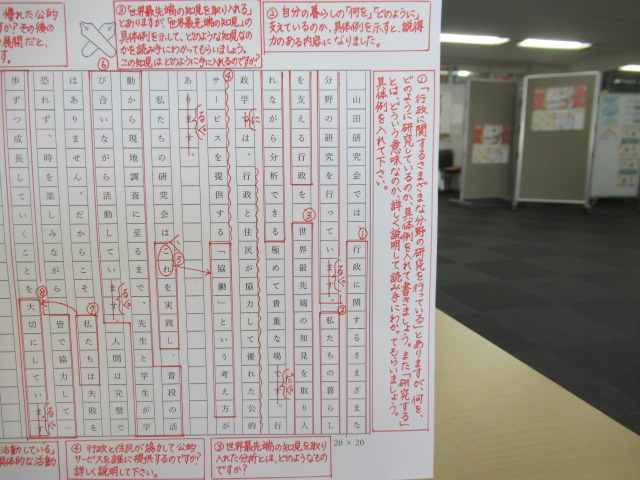 ①「行政に関するさまざまな分野の研究を行っている」とありますが、何を、
どのように研究しているのか、具体例を入れて書きましょう。また「研究する」
とは、どういう意味なのか、詳しく説明して読み手にわかってもらいましょう。
具体例を入れて下さい。
② 自分の暮らしの「何を」「どのように」
支えているのか、具体例を示すと、説得
力のある内容になりました。
③「世界最先端の知見を取り入れる」
とありますが「世界最先端の知見」の
具体例を示して、どのような知見なの
かを読み手にわかってもらいましょう。
この知見はどのように手に入れるのですか?
優れた公的
すか? その後の
展開だと、
す。
山田研究会では、行政に関するさまざまな
分野の研究を行っています。私たちの暮らし
を支える行政を、世界最先端の知見を取り入
れながら分析できる極めて貴重な場です。行
政学は、行政と住民が協力して優れた公的
サービスを提供する「協働」という考え方が
あります。
私たちの研究会はこれを実践し、普段の活
動から現地調査に至るまで、先生と学生が学
び合いながら活動しています。人間は完璧で
はありません。だからこそ、私たちは失敗を
恐れず、時を楽しみながら、皆で協力して一
歩ずつ成長していくことを大切にしています
20×20
③ 世界最先端の知見を取り
入れた分析とは、どのようなもの
ですか?
④ 行政と住民が協力して公的
サービスを誰に提供するのですか?
詳しく説明して下さい。
活動している」
具体的な活動